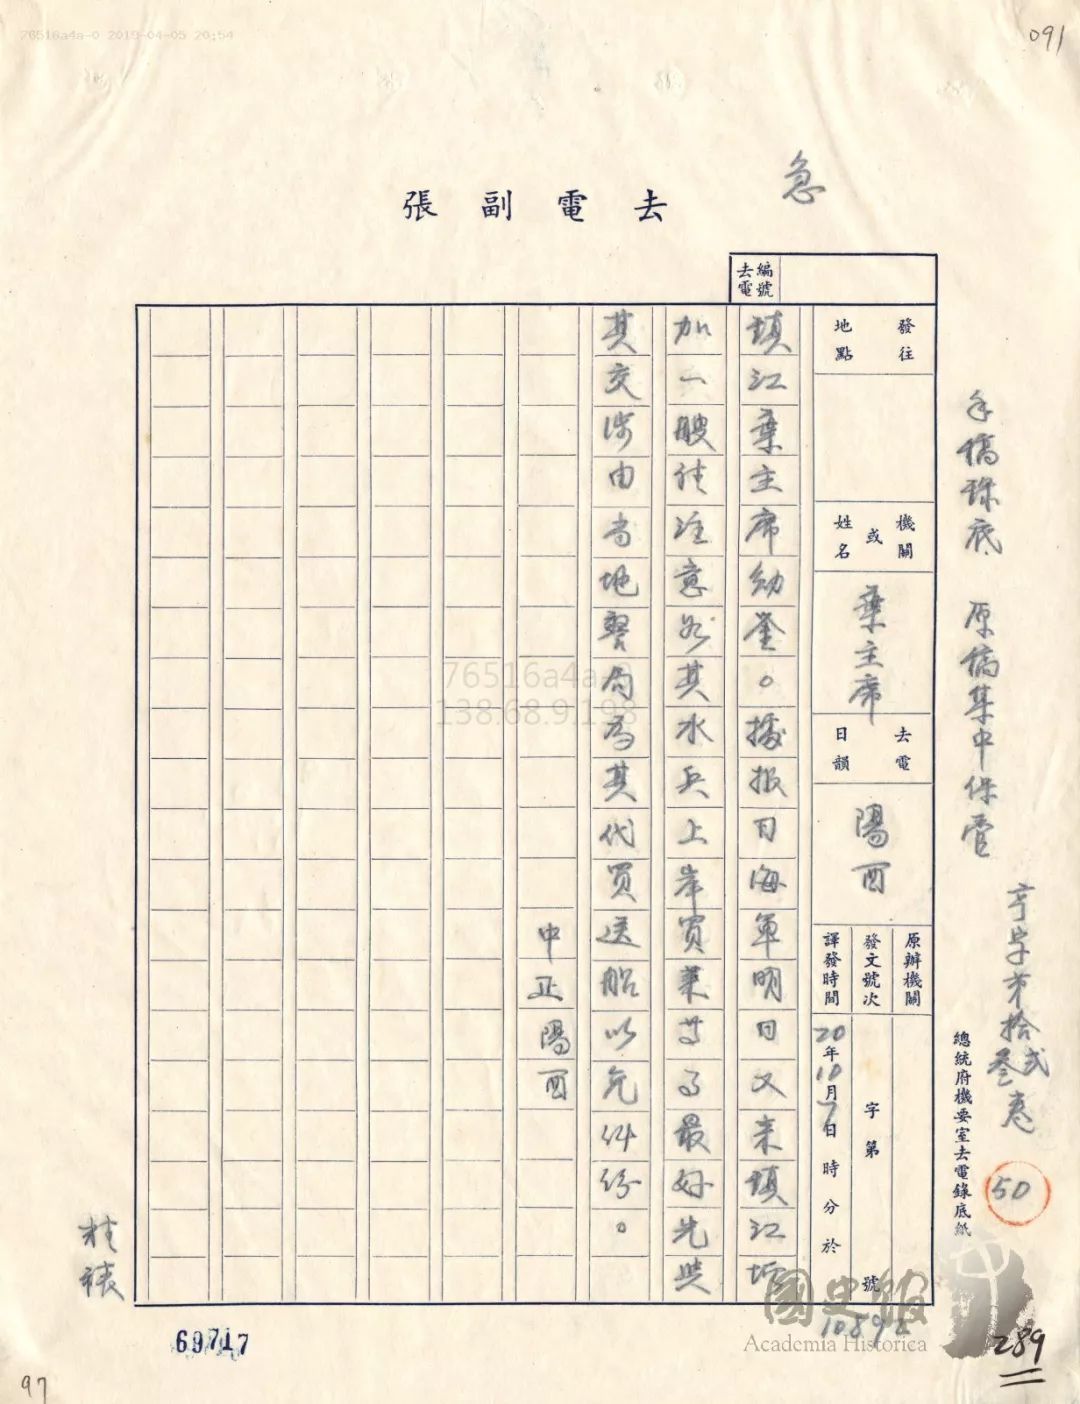 76516a4a-0 2019-04-05 20:54
091
急
去電副張
去電編號
發往地點
機關或姓名
葉主席
去電日韻
陽酉
原辦機關
發文號次
字第號
譯發時間
20年10月7日時分於
鎮江葉主席勛鑒。據报日海軍明日又来鎮江增
加一艘往注意於其水兵上岸買菜等事最好先與
其交涉由当地警局為其代買送船以免糾紛。
中正陽酉
手稿 底 原稿集中保管
亨字第拾弍叁卷
50
總統府機要室去電錄底紙
76516a4a-0
138.68.9.198
國史館
Academia Historica
289
69717
97